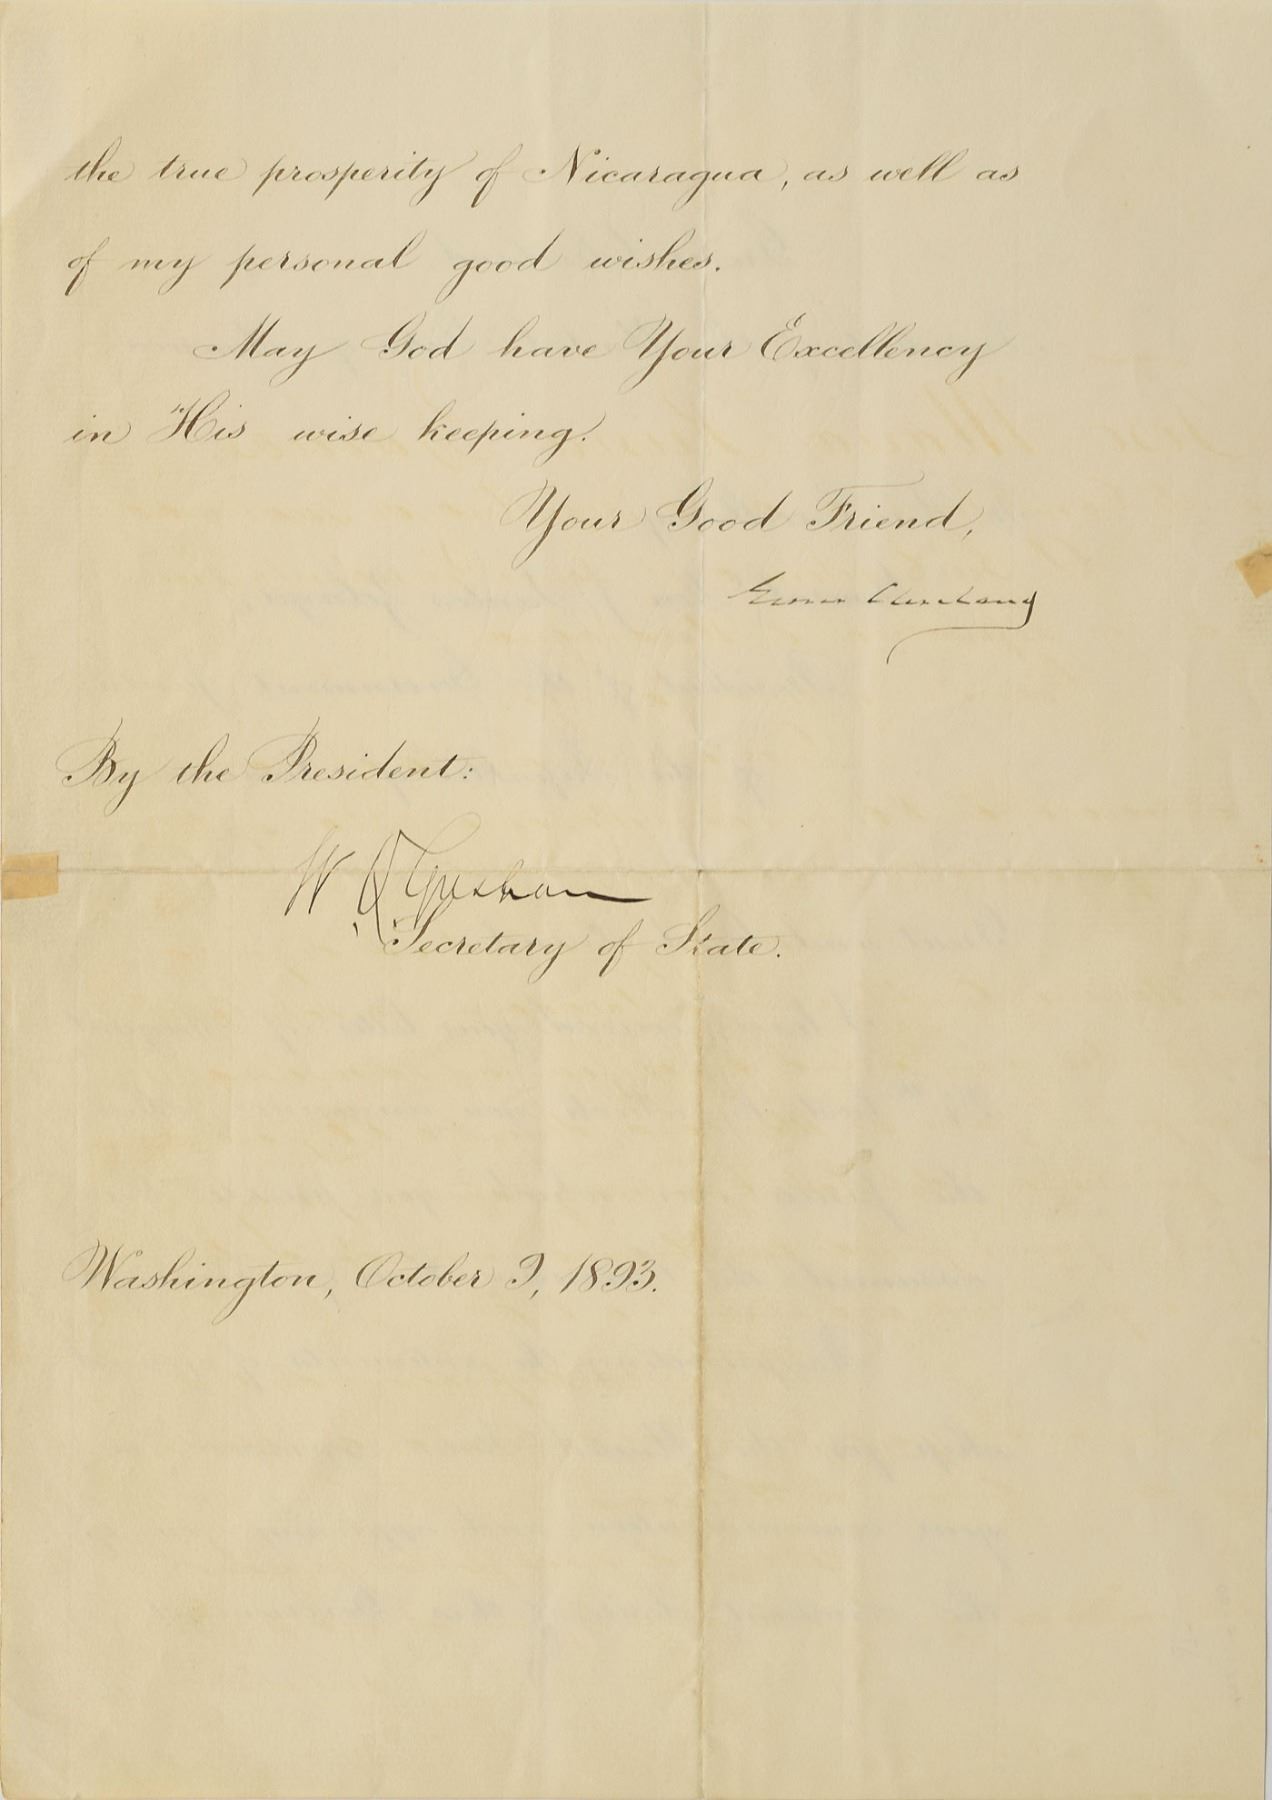 the true prosperity of Nicaragua, as well as
of my personal good wishes.
May God have Your Excellency
in His wise keeping.
Your Good Friend,
Grover Cleveland
By the President:
W. Q. Gresham
Secretary of State.
Washington, October 9, 1893.